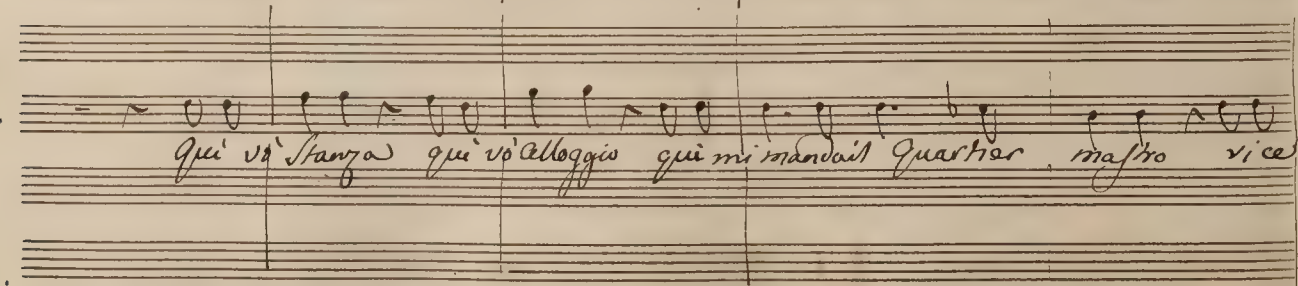 qui vò Stanza qui vò alloggio qui mi manda il Quartier mastro vice